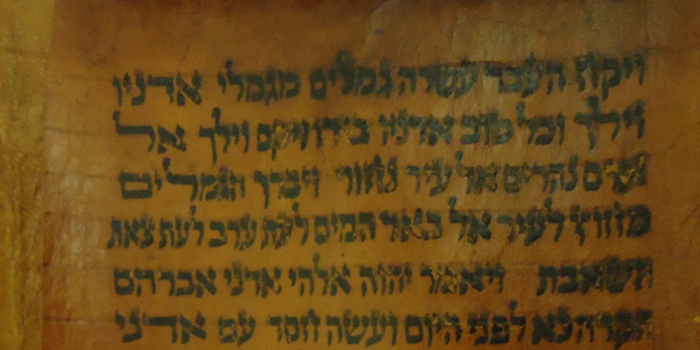 ויקח העבד עשרה גמלים מגמלי אדניו
וילך וכל טוב אדניו בידו ויקם וילך אל
ארם נהרים אל עיר נחור ויברך הגמלים
מחוץ לעיר אל באר המים לעת ערב לעת צאת
השאבת ויאמר יהוה אלהי אדני אברהם
הקרה נא לפני היום ועשה חסד עם אדני